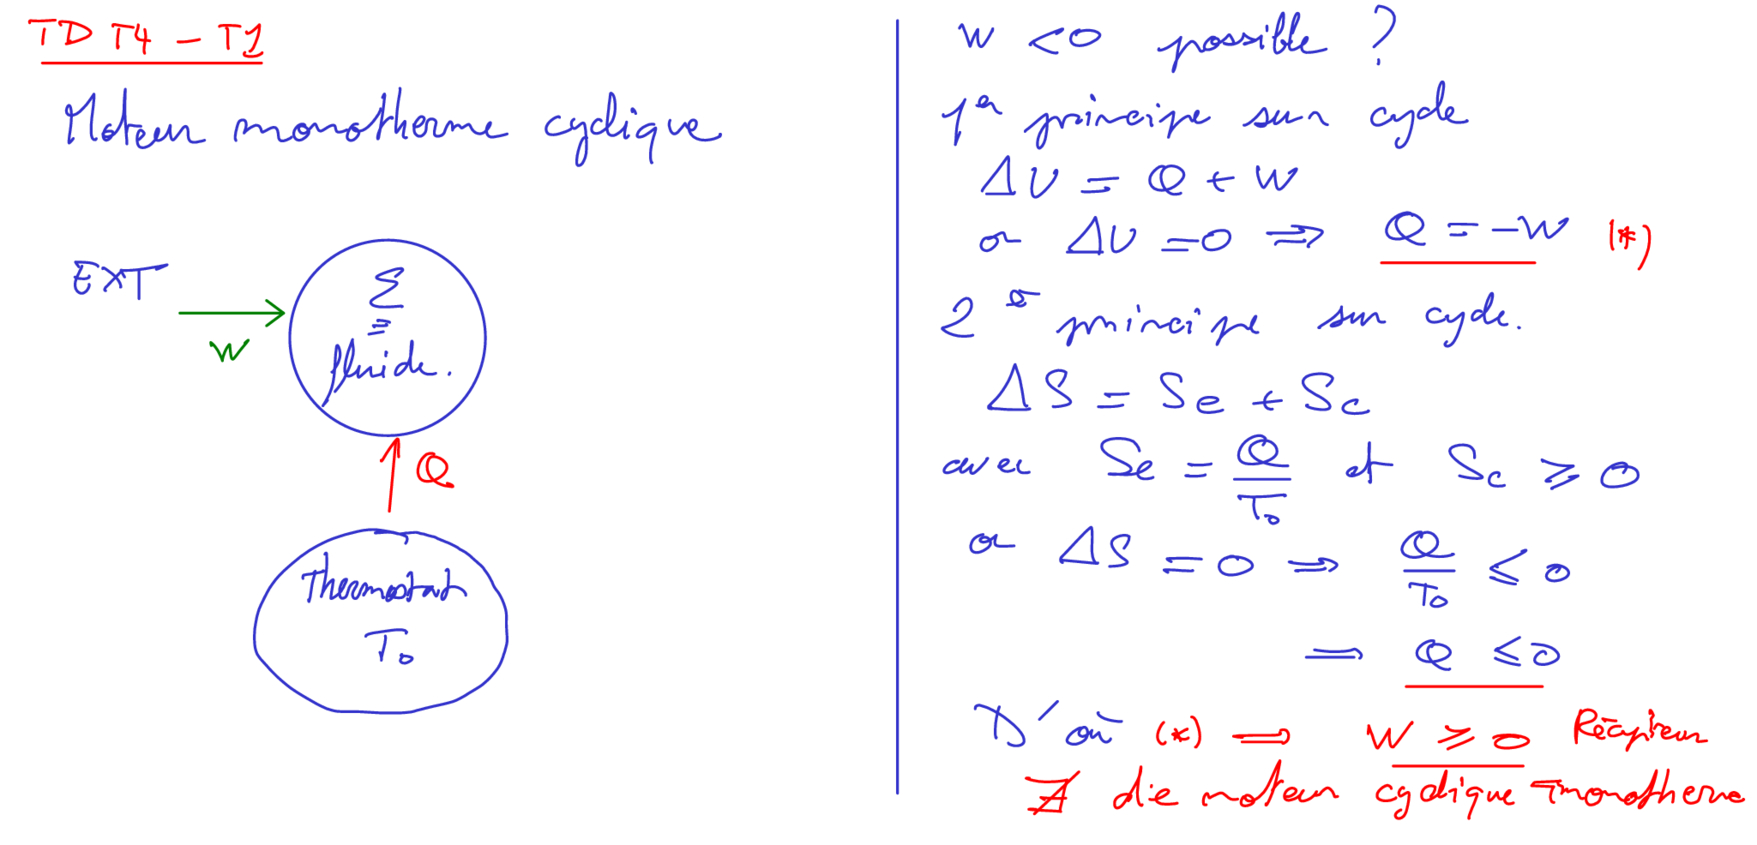 TD T4 - T1
Moteur monotherme cyclique
EXT
W
Σ
≡
fluide.
Q
Thermostat
T₀
W < 0 possible ?
1er principe sur cycle
ΔU = Q + W
or ΔU = 0 ⇒ Q = -W (*)
2e principe sur cycle.
ΔS = Se + Sc
avec Se = Q/T₀ et Sc ≥ 0
or ΔS = 0 ⇒ Q/T₀ ≤ 0
⇒ Q ≤ 0
D'où (*) ⇒ W ≥ 0 Récepteur
∄ de moteur cyclique monotherme